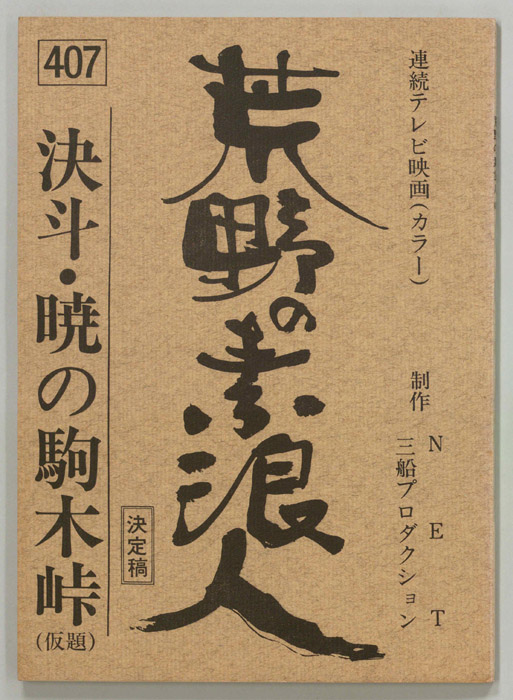 連続テレビ映画(カラー)
制作 NET
三船プロダクション
荒野の素浪人
決定稿
407
決斗・暁の駒木峠
(仮題)